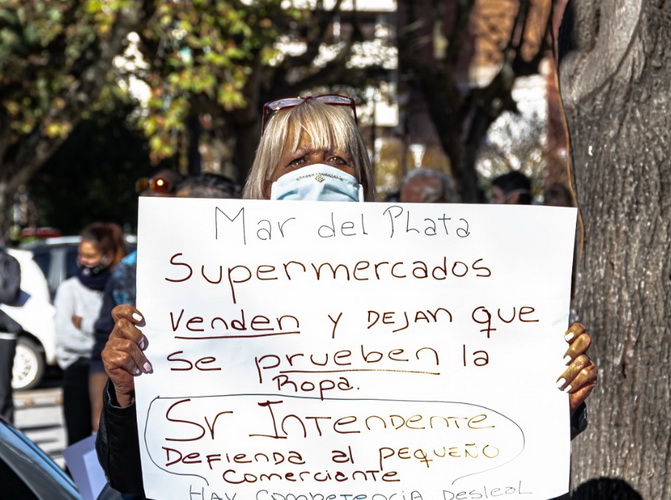 Mar del Plata
Supermercados
venden y DEJAN que
se prueben la
Ropa.
Sr Intendente
Defienda al pequeño
comerciante
Hay competencia desleal